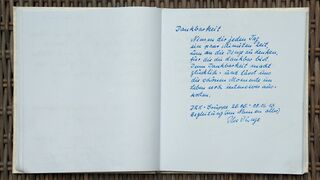 Dankbarkeit
Nimm dir jeden Tag
ein paar Minuten Zeit,
um an die Dinge zu denken,
für die du dankbar bist.
Denn Dankbarkeit macht
glücklich und lässt uns
die schönen Momente im
Leben noch intensiver aus-
kosten.
Begleitung im Namen aller